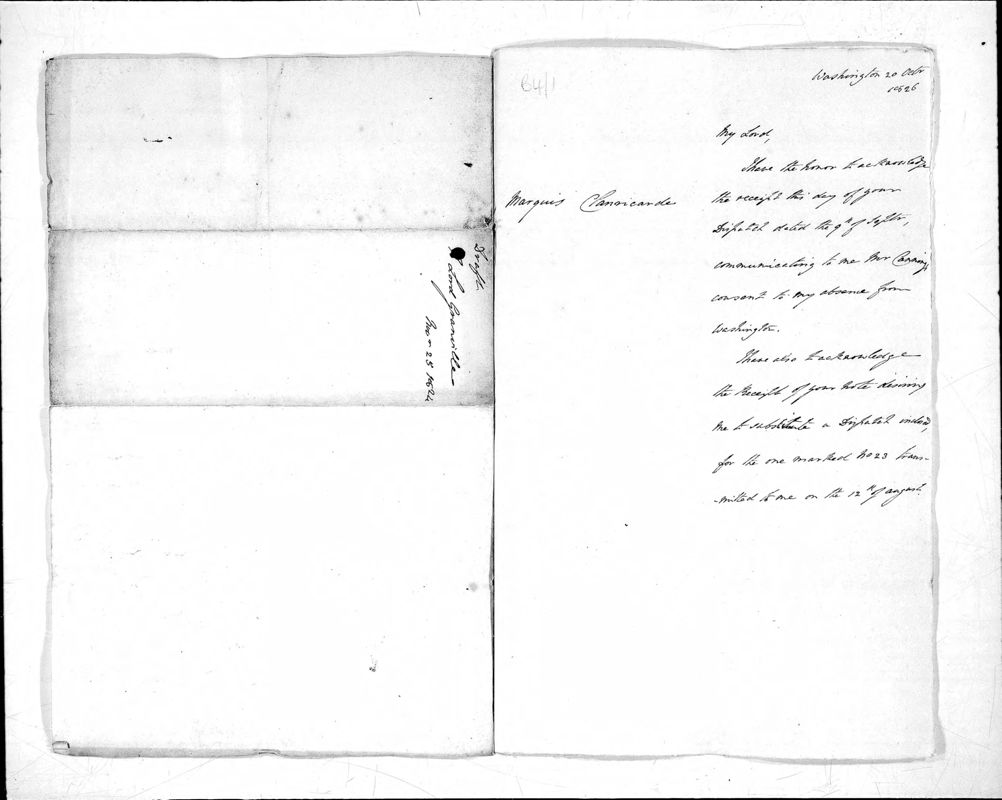 Draft
To Lord Granville
Novr 25 1824
B4/1
Washington 20 Octr
1826
Marquis Clanricarde
My Lord,
I have the honor to acknowledge
the receipt this day of your
Dispatch dated the 9th of Septr,
communicating to me Mr Canning's
consent to my absence from
Washington.
I have also to acknowledge
the Receipt of your Note desiring
me to substitute a Dispatch inclosed,
for the one marked No 23 trans-
-mitted to me on the 12th of august.